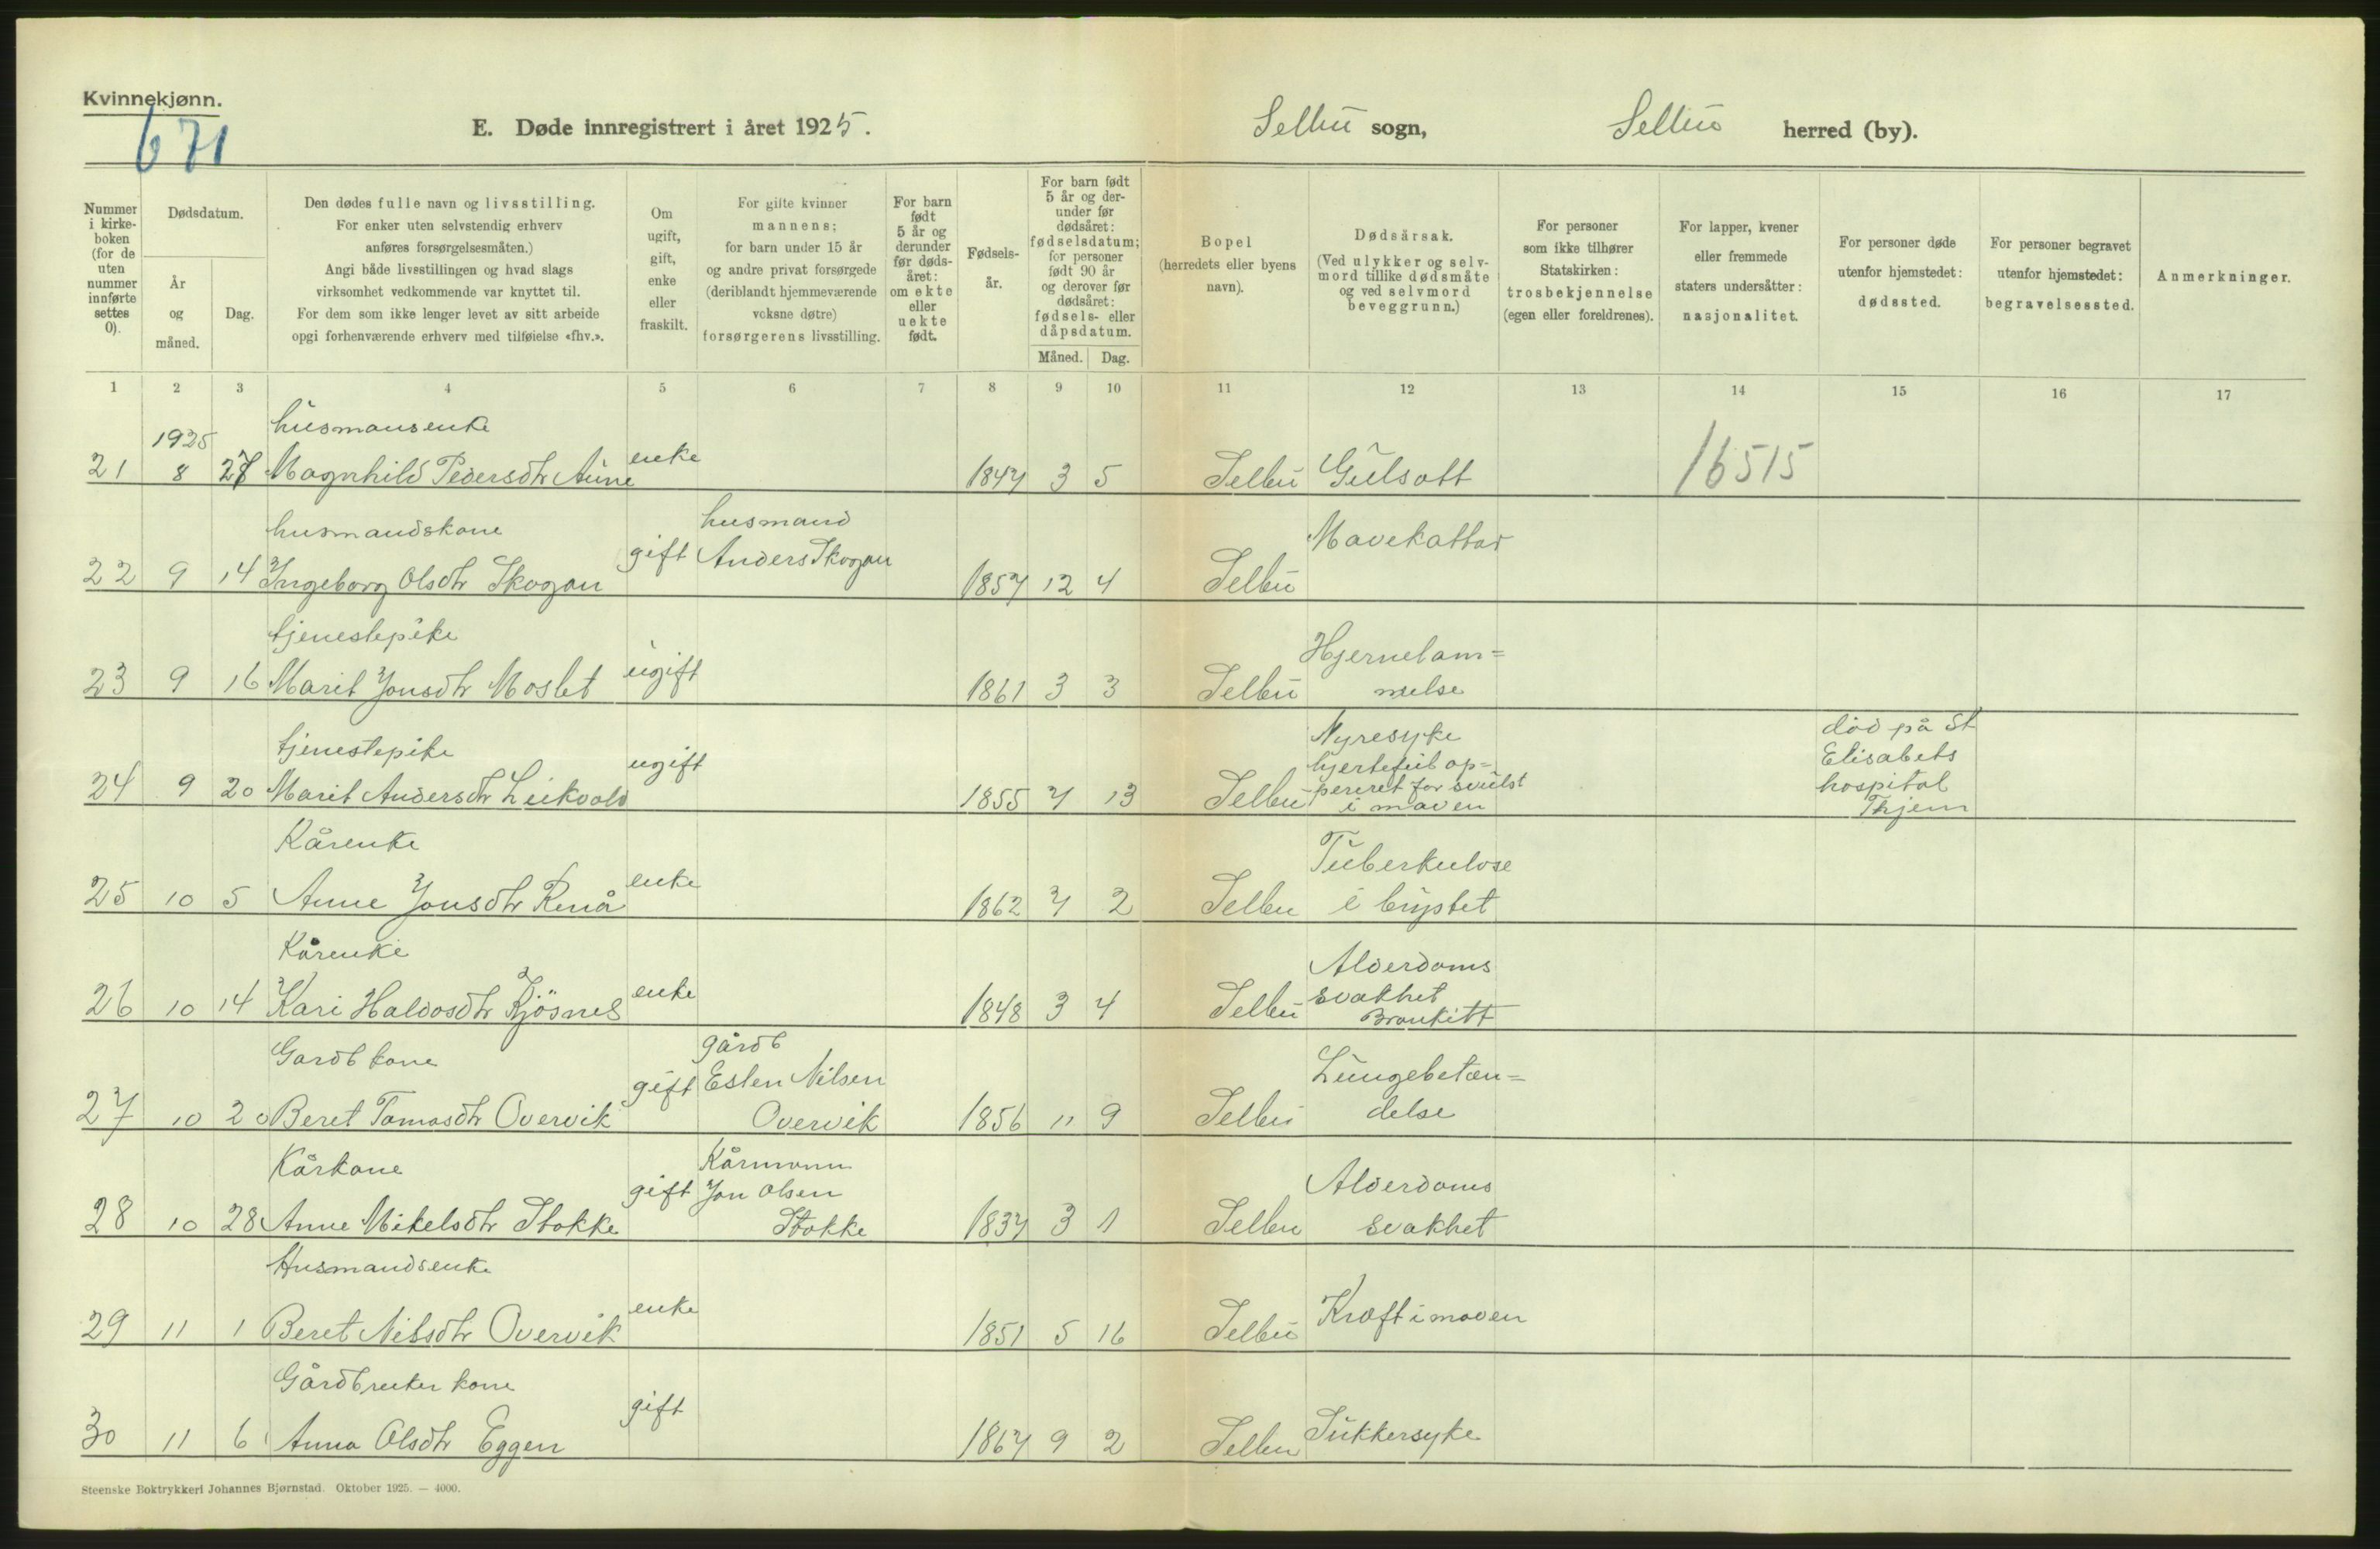 Kvinnekjønn.
671
E. Døde innregistrert i året 1925.
Selbu sogn,
Selbu herred (by).
Nummer i kirke-boken (for de uten nummer innførte settes 0).
Dødsdatum.
År og måned.
Dag.
Den dødes fulle navn og livsstilling.
For enker uten selvstendig erhverv
anføres forsørgelsesmåten.)
Angi både livsstillingen og hvad slags
virksomhet vedkommende var knyttet til.
For dem som ikke lenger levet av sitt arbeide
opgi forhenværende erhverv med tilføielse «fhv.».
Om ugift, gift, enke eller fraskilt.
For gifte kvinner
mannens;
for barn under 15 år
og andre privat forsørgede
(deriblandt hjemmeværende
voksne døtre)
forsørgerens livsstilling.
For barn født 5 år og derunder før døds-året: om ekte eller uekte født.
Fødsels-år.
For barn født 5 år og der-under før dødsåret: fødselsdatum; for personer født 90 år og derover før dødsåret: fødsels- eller dåpsdatum.
Måned. Dag.
Bopel
(herredets eller byens
navn).
Dødsårsak.
(Ved ulykker og selv-
mord tillike dødsmåte
og ved selvmord
beveggrunn.)
For personer
som ikke tilhører
Statskirken:
trosbekjennelse
(egen eller foreldrenes).
For lapper, kvener
eller fremmede
staters undersåtter:
nasjonalitet.
For personer døde
utenfor hjemstedet:
dødssted.
For personer begravet
utenfor hjemstedet:
begravelsessted.
Anmerkninger.
1 2 3 4 5 6 7 8 9 10 11 12 13 14 15 16 17
husmansenke
1925
21 8 27 Magnhild Pedersdtr Aune enke 1847 3 5 Selbu Gulsott 16515
husmandskone husmand
22 9 14 Ingeborg Olsdtr Skogan gift Anders Skogan 1857 12 4 Selbu Mavekattar
tjenestepike
23 9 16 Marit Jonsdtr Moslet ugift 1861 3 3 Selbu Hjernelam=
melse
tjenestepike
24 9 20 Marit Andersdtr Leikvold ugift 1855 7 13 Selbu Nyresyke
hjertefeil op=
pereret for svulst
i maven
død på St
Elisabets
hospital
Thjem
Kårenke
25 10 5 Anne Jonsdtr Renå enke 1862 7 2 Selbu Tuberkulose
i brystet
Kårenke
26 10 14 Kari Haldosdtr Kjösnes enke 1848 3 4 Selbu Alderdoms
svakhet
Bronkitt
Gardb kone gårdb
27 10 20 Beret Tomasdtr Overvik gift Esten Nilsen
Overvik 1856 11 9 Selbu Lungebetæn=
delse
Kårkone Kårmann
28 10 28 Anne Mikelsdtr Stokke gift Jon Olsen
Stokke 1837 3 1 Selbu Alderdoms
svakhet
Husmandsenke
29 11 1 Beret Nilsdtr Overvik enke 1851 5 16 Selbu Kræft i maven
Gårdbruker kone
30 11 6 Anna Olsdtr Eggen gift 1867 9 2 Selbu Sukkersyke
Steenske Boktrykkeri Johannes Bjørnstad. Oktober 1925. — 4000.